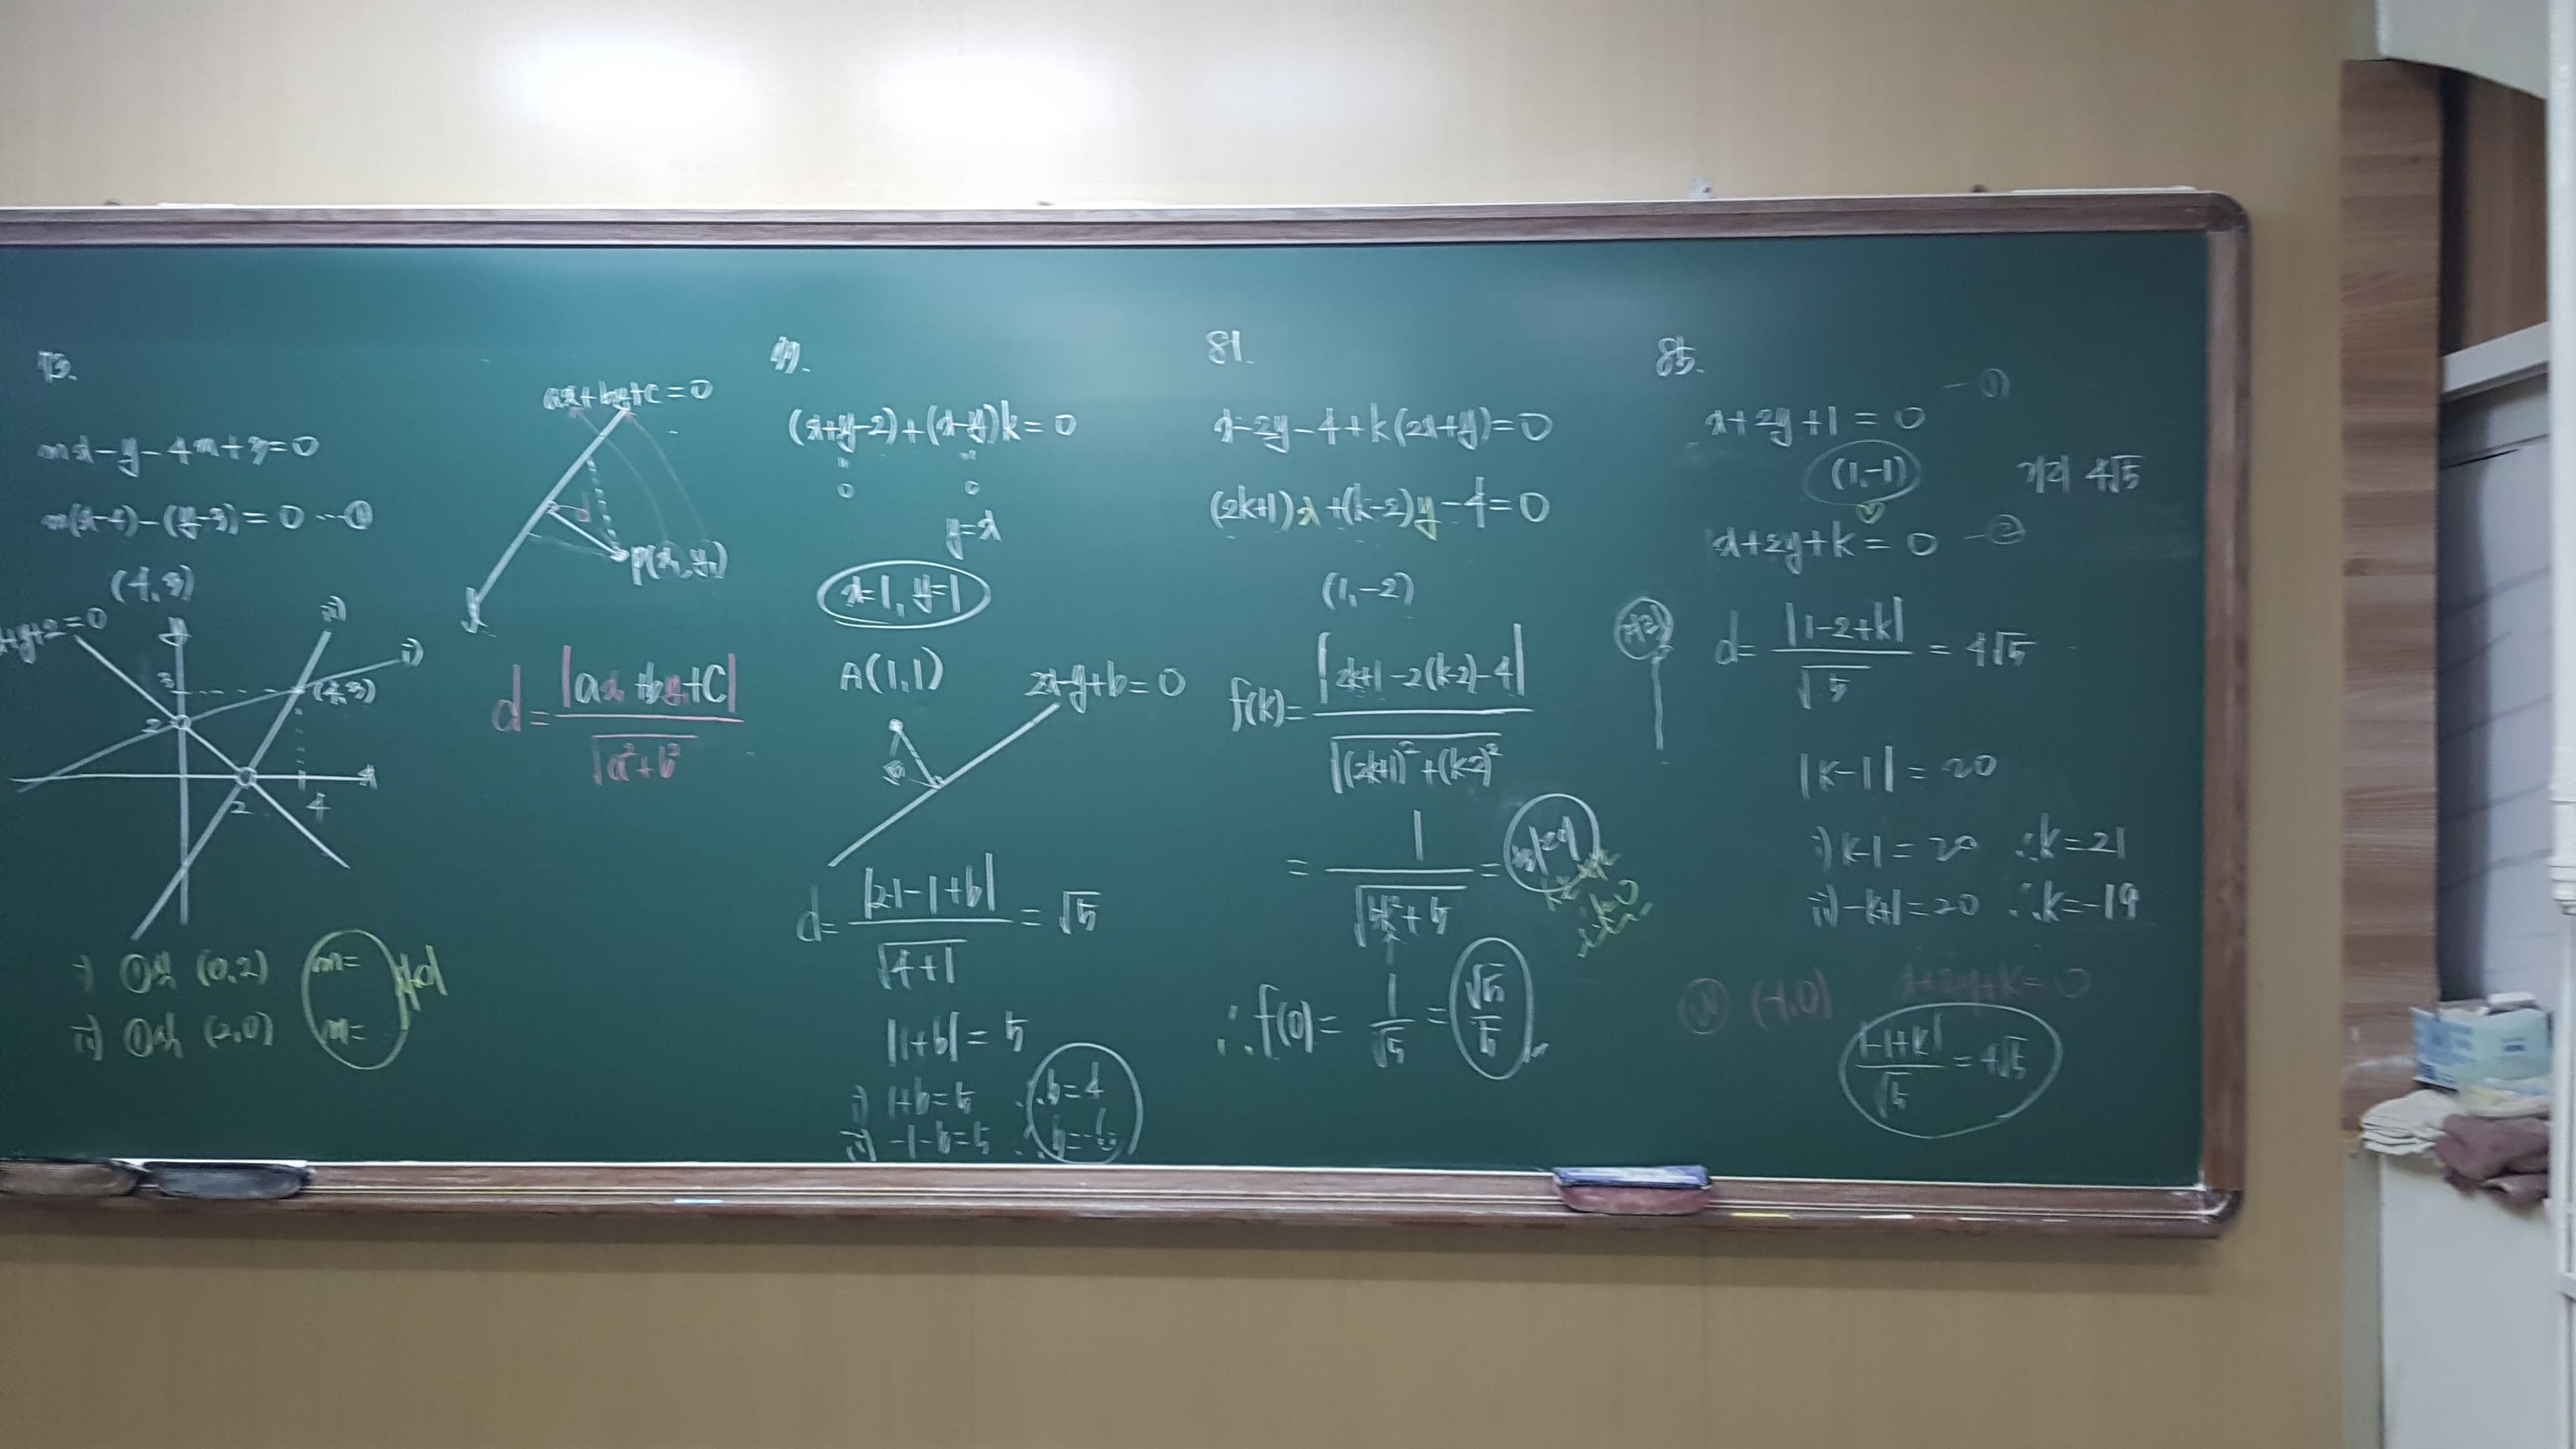 73.
mx-y-4m+3=0
m(x-4)-(y-3)=0 ...①
(4,3)
+y+2=0
y
ii)
i)
3
(4,3)
2
2
4
x
i) ①이 (0,2)
m=
ii) ①이 (2,0)
m=
ax+by+c=0
d
P(x₁,y₁)
d=|ax₁+by₁+c|/√(a²+b²)
77.
(x+y-2)+(x-y)k=0
"
"
0
0
y=x
x=1, y=1
A(1,1)
2x-y+b=0
√5
d=|2·1-1+b|/√(4+1)=√5
|1+b|=5
i) 1+b=5 ∴b=4
ii) -1-b=5 ∴b=-6
81.
x-2y-4+k(2x+y)=0
(2k+1)x+(k-2)y-4=0
(1,-2)
f(k)=|2k+1-2(k-2)-4|/√((2k+1)²+(k-2)²)
=1/√(5k²+5)=
∴f(0)=1/√5=√5/5
85.
x+2y+1=0 -①
(1,-1)
거리 4√5
x+2y+k=0 -②
d=|1-2+k|/√5=4√5
|k-1|=20
i) k-1=20 ∴k=21
ii) -k+1=20 ∴k=-19
(-1,0) x+2y+k=0
|-1+k|/√5=4√5